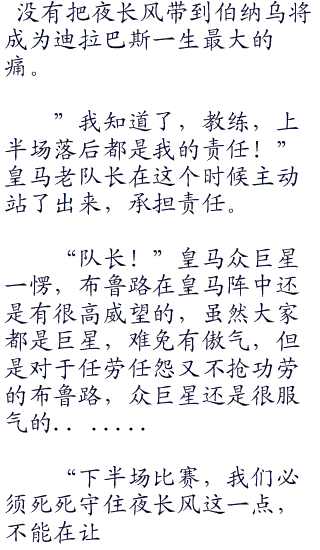 没有把夜长风带到伯纳乌将
成为迪拉巴斯一生最大的
痛。
”我知道了，教练，上
半场落后都是我的责任！”
皇马老队长在这个时候主动
站了出来，承担责任。
“队长！”皇马众巨星
一愣，布鲁路在皇马阵中还
是有很高威望的，虽然大家
都是巨星，难免有傲气，但
是对于任劳任怨又不抢功劳
的布鲁路，众巨星还是很服
气的．．．．．．．
“下半场比赛，我们必
须死死守住夜长风这一点，
不能在让